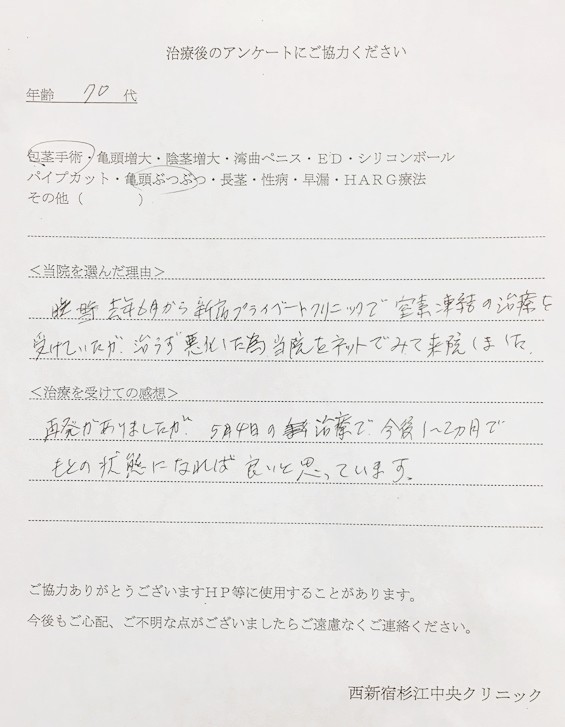 治療後のアンケートにご協力ください
年齢 70 代
包茎手術・亀頭増大・陰茎増大・湾曲ペニス・ED・シリコンボール
パイプカット・亀頭ぶつぶつ・長茎・性病・早漏・HARG療法
その他（　　　）
＜当院を選んだ理由＞
去年6月から新宿プライベートクリニックで窒素凍結の治療を
受けていたが、治らず悪化した為当院をネットでみて来院しました。
＜治療を受けての感想＞
再発がありましたが、5月4日の治療で、今後1～2ヵ月で
もとの状態になれば良いと思っています。
ご協力ありがとうございますHP等に使用することがあります。
今後もご心配、ご不明な点がございましたらご遠慮なくご連絡ください。
西新宿杉江中央クリニック